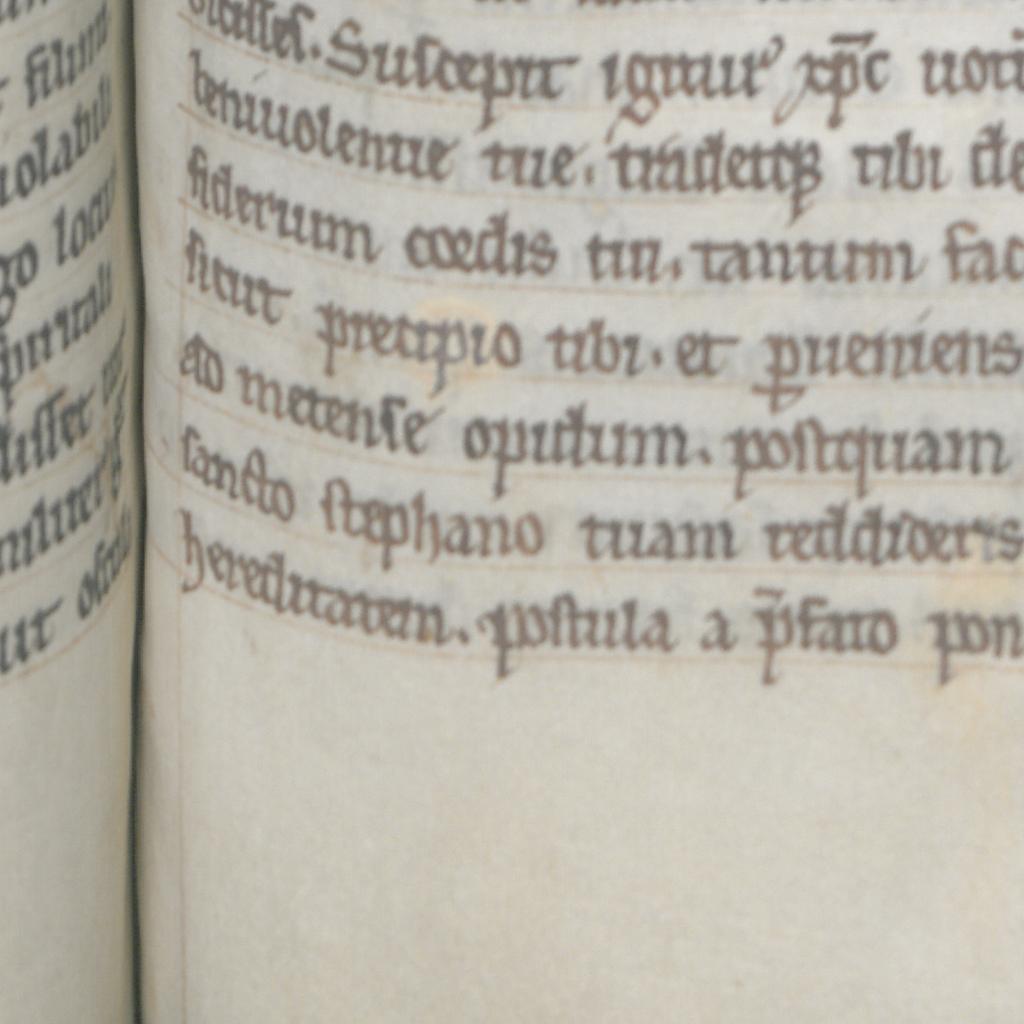 filium
uolabili
go locu
spiritali
ut
Suscepit igitur xp̄c uoti
beniuolentie tue. tradetq; tibi de
siderum cordis tui. tantum fac
sicut precipio tibi. et ꝑueniens
ad metense opidum. postquam
sancto stephano tuam reddideris
hereditatem. postula a p̄fato pon